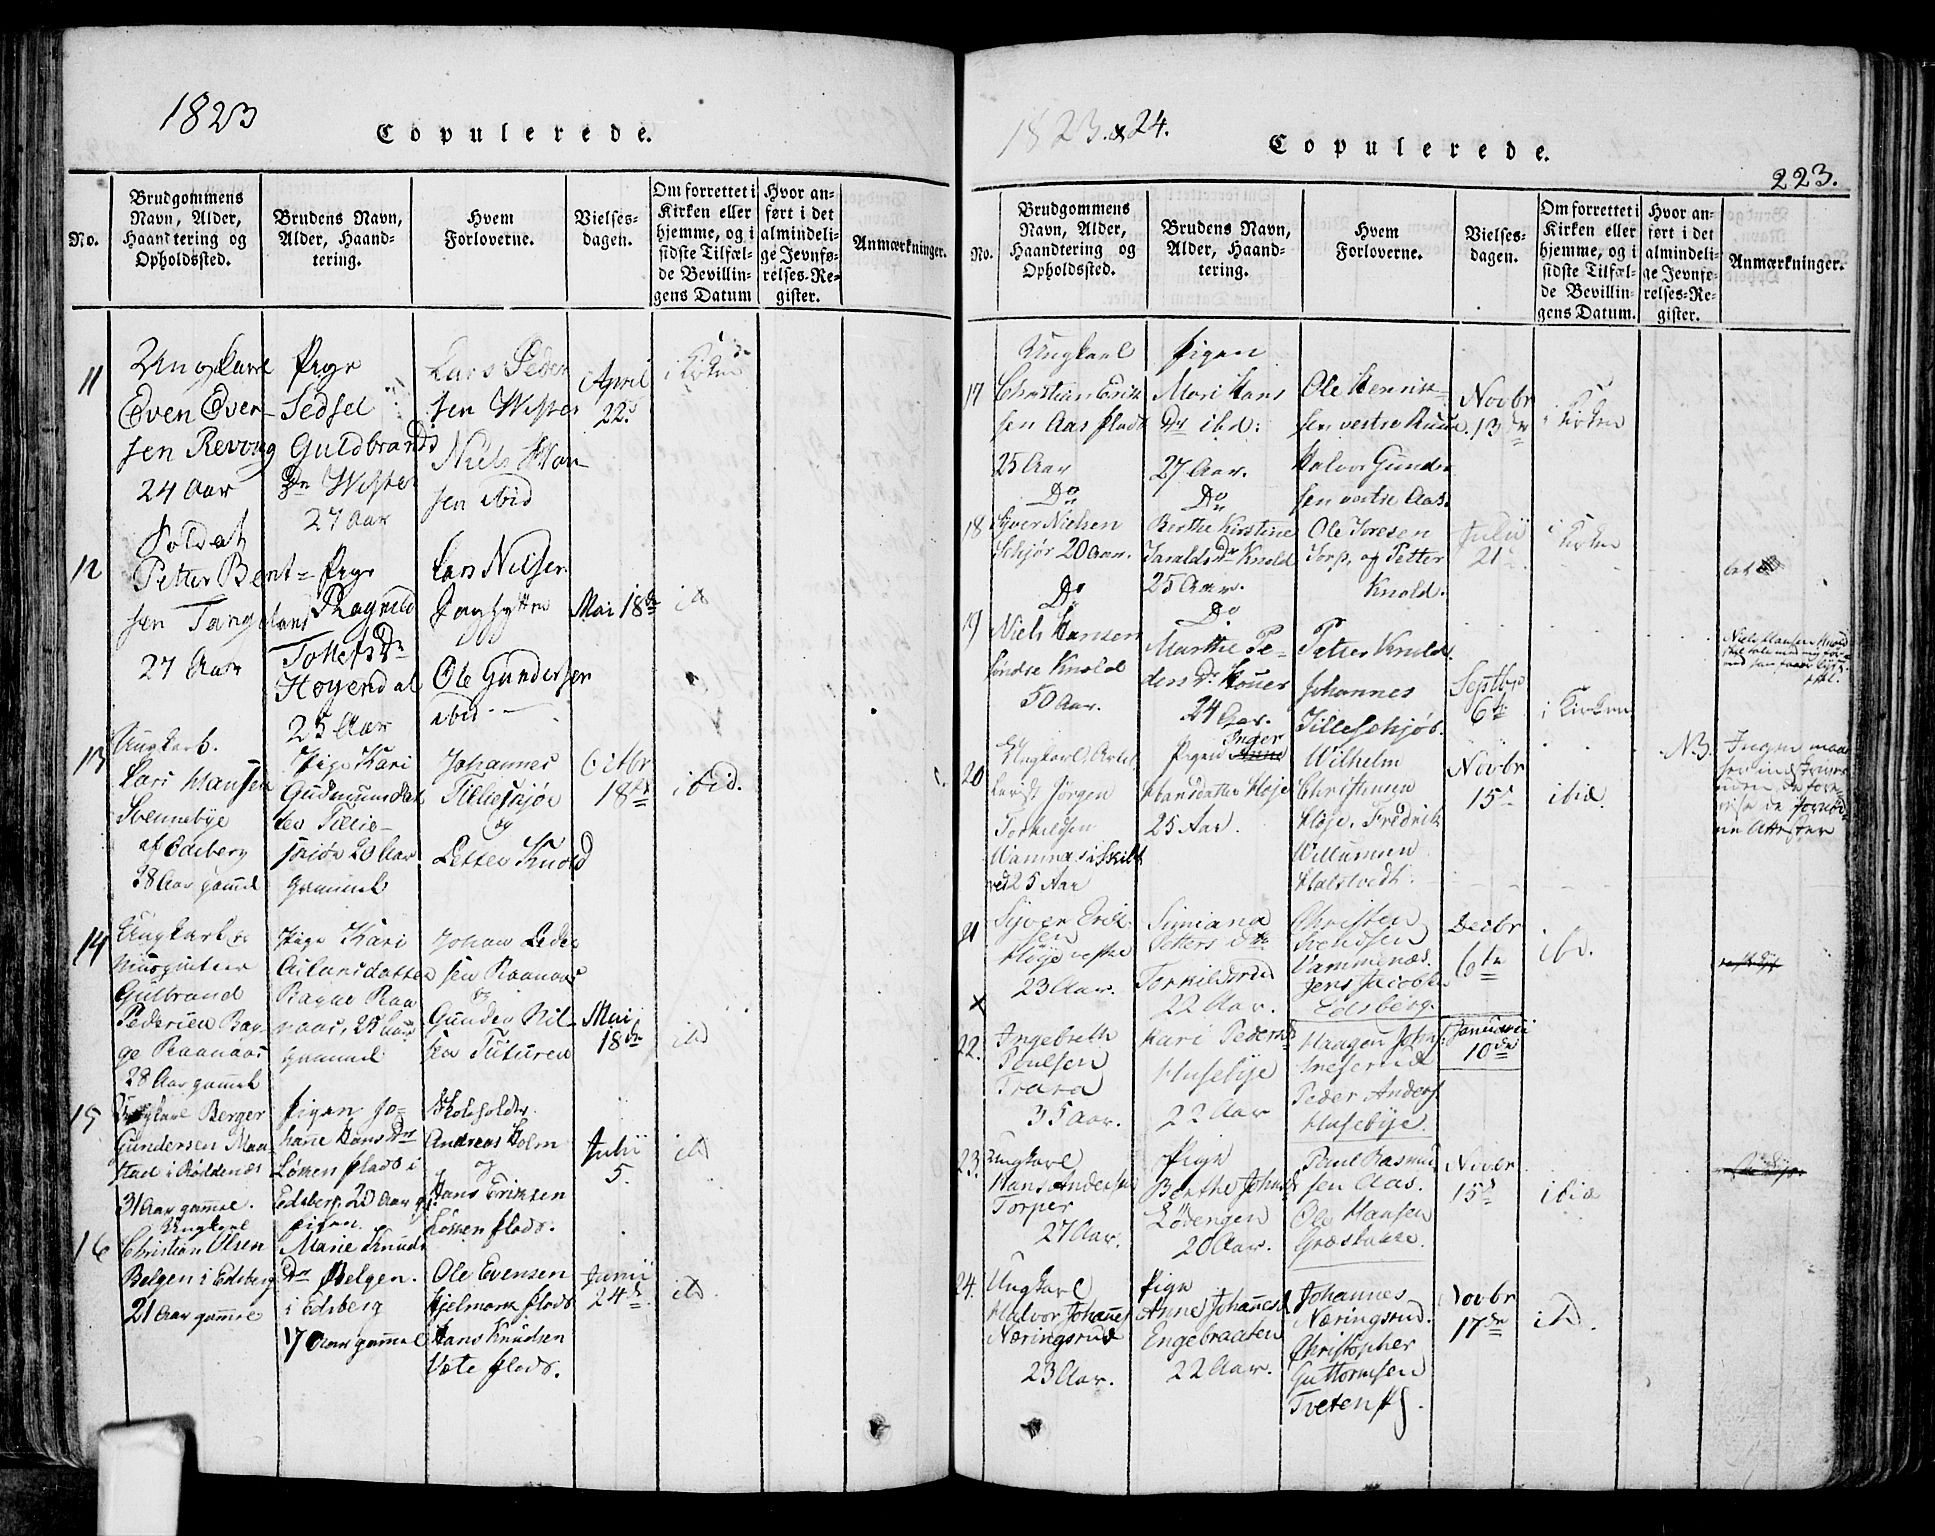 1823
Copulerede.
No.
Brudgommens
Navn, Alder,
Haandtering og
Opholdssted.
Brudens Navn,
Alder, Haand-
tering.
Hvem
Forloverne.
Vielses-
dagen.
Om forrettet i
Kirken eller
hjemme, og i
sidste Tilfæl-
de Bevillin-
gens Datum
Hvor an-
ført i det
almindeli-
ge Jevnfø-
relses-Re-
gister.
Anmærkninger.
11
Ungkarl
Even Even-
sen Revoug
24 Aar
Soldat
Pige
Sedsel
Guldbrands
Dr Wister
27 Aar
Lars Peder
sen Wister
Niels Han-
sen ibid
April
22
i Kirken
12
Petter Bent-
sen Tangelans
27 Aar
Pige
Ragnild
Tollefs Dr
Høgendal
25 Aar
Lars Nilsen
Ole Gundersen
ibid.
Mai 18de
id
13
Ungkarl.
Lars Hansen
Svennebye
af Edsberg
38 Aar gaml
Pige Kari
Gudmunsdat
ter Tillie-
skiør 20 Aar
gammel
Johannes
Tillieskjør
og
Petter Knold
Octbr
18de
ibid.
14
Ungkarl
Musqueteer
Gulbrand
Pedersen Bag-
ge Raanaas
28 Aar gammel
Pige Kari
Arlansdatter
Bagge Raa
naas, 24 Aar
gammel
Johan Peder
sen Raanaas
og
Gunder Nil-
sen Tuturen
Mai
18de
id
15
Ungkarl Berger
Gundersen Maa-
stad i Røddenæs
31 Aar gamme.
Pigen Jo-
hane Hans Dr
Løken plads i
Edsberg, 20 Aar g
Skoleholder
Andreas Holm
og
Hans Eriksen
Løkken plads.
Julii
5.
id
16
Ungkarl
Christian Olsen
Belgen i Edsberg
21 Aar gamme
Pigen
Marie Knuds
Dr Belgen.
i Edsberg
17 Aar gammel
Ole Evensen
Hjelmark plads
Hans Knudsen
Vete plads.
Junii
24de.
id.
1823. & 24.
Copulerede.
223.
No.
Brudgommens
Navn, Alder,
Haandtering og
Opholdssted.
Brudens Navn,
Alder, Haand-
tering.
Hvem
Forloverne.
Vielses-
dagen.
Om forrettet i
Kirken eller
hjemme, og i
sidste Tilfæl-
de Bevillin-
gens Datum.
Hvor an-
ført i det
almindeli-
ge Jevnfø-
relses-Re-
gister.
Anmærkninger.
17
Ungkarl
Christian Erik
sen Aas plads
25 Aar
Pigen
Mari Hans
Dr ibd:
27 Aar.
Ole Henrik-
sen vestre Ruud.
Halvor Gunder
sen vestre Aas.
Novbr
13de
i Kirken
18
Do
Syver Nielsen
Schjør 20 Aar.
Do
Berthe Kirstine
Haralds Dr Knold
25 Aar.
Ole Toresen
Torp, og Petter
Knold.
Julii
21
i Kirken
19
Do
Niels Hansen
søndre Knold
50 Aar.
Do
Marthe Pe-
ders Dr Houer
24 Aar.
Petter Knold
Johannes
Tilleschjøb.
Septbr
6te
i Kirken
20
Ungkarl
Jørgen
Torkildsen
Wamnæs i Skibt
ved 25 Aar
Pigen Inger
Hansdatter Høje
25 Aar.
Wilhelm
Christensen
Høje. Fredrik
Willumsen
Halstvedt.
Novbr
15
ibid.
NB. Ingen maa
21
Syver Erik-
sen
Høje vestre
23 Aar.
Simiana
Peters Dr
Torkilsrud
22 Aar.
Christen
Svendsen
Vammenæs.
Jens Jacobs
Edsberg.
Decbr
6te
ibd.
22.
Ingebreth
Poulsen
Trara
35 Aar.
Kari Peders
Husebije
22 Aar
Haagen John
Kreserud
Peder Anders
Husebije.
Januarii
10de
23.
Ungkarl
Hans Anderse
Torper
27 Aar.
Pige
Berthe Johns
Lødengen
20 Aar.
Paul Rasmu
sen Aas.
Ole Hansen
Græskasse.
Novbr
15de
ibid
24.
Ungkarl
Halvor Johanes
Næringsrud
23 Aar.
Pige
Anne Johanesd
Engebraaten
22 Aar.
Johannes
Næringsrud.
Christopher
Guttormsen
Tveten Pl.
Novbr
17de
id.